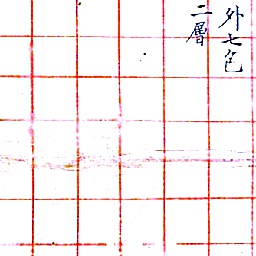 外七包
二層